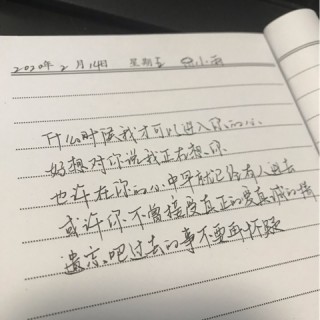 2020年2月14日 星期五 小雨
什么时候我才可以进入你的心
好想对你说我正在想你
也许在你的心中早就已经有人进去
或许你不曾接受真正的爱真诚的情
遗忘吧过去的事不要再怀疑